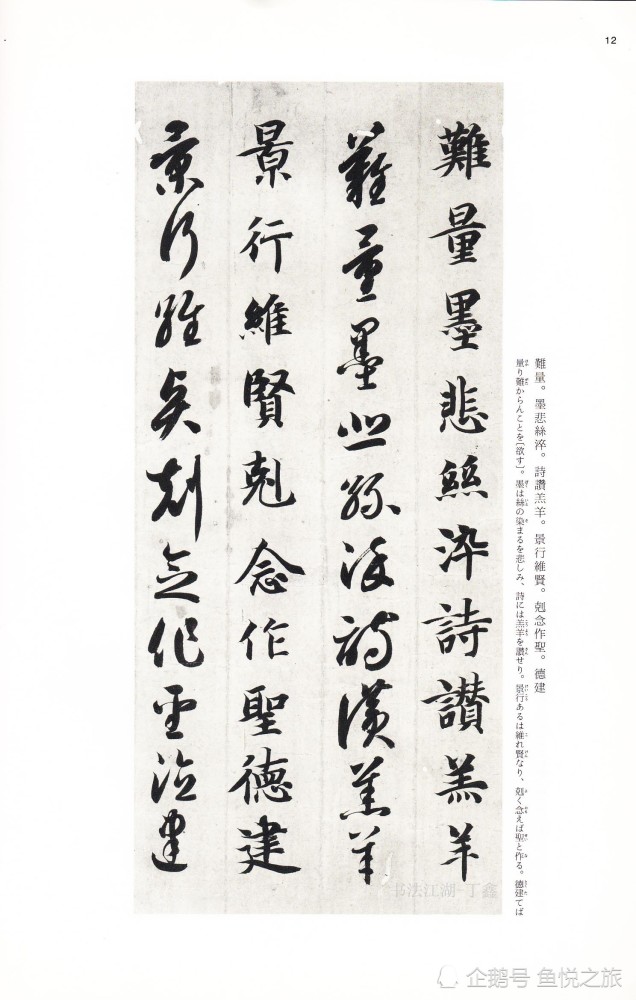 12
難量。墨悲絲淬。詩讚羔羊。景行維賢。剋念作聖。德建
量り難からんことを[欲す]。墨は絲の染まるを悲しみ、詩には羔羊を讚せり。景行あるは維れ賢なり、剋く念えば聖と作る。德建てば
難量墨悲絲淬詩讚羔羊
難量墨悲絲淬詩讚羔羊
景行維賢剋念作聖德建
景行維賢剋念作聖德建
书法江湖-丁鑫
企鹅号 鱼悦之旅